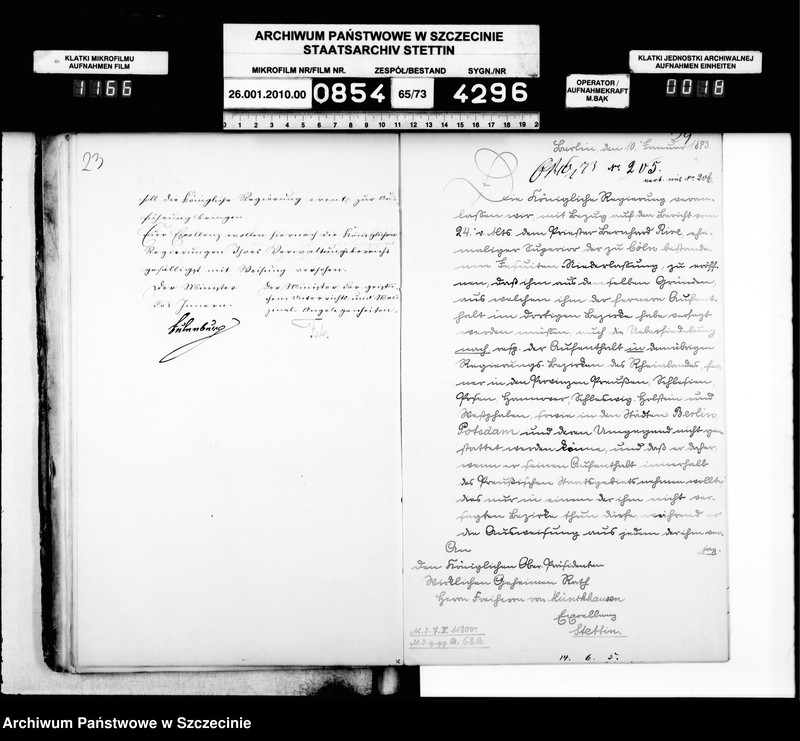 ARCHIWUM PAŃSTWOWE W SZCZECINIE
STAATSARCHIV STETTIN
MIKROFILM NR/FILM NR. ZESPÓŁ/BESTAND SYGN./NR
26.001.2010.00 0854 65/73 4296
KLATKI MIKROFILMU
AUFNAHMEN FILM
1166
OPERATOR /
AUFNAHMEKRAFT
M.BĄK
KLATKI JEDNOSTKI ARCHIWALNEJ
AUFNAHMEN EINHEITEN
0018
0 1 2 3 4 5 6 7 8 9 10 11 12 13 14 15 16 17 18 19 20
23
soll die Königliche Regierung event. zur Aus-
führung bringen.
Euer Excellenz wollen hiernach die Königlichen
Regierungen Ihres Verwaltungsbereichs
gefälligst mit Weisung versehen.
Der Minister
des Innern.
Eulenburg
Der Minister der geist-
lichen, Unterrichts und Medi-
zinal-Angelegenheiten.
Falk.
Berlin, den 10. Januar 1873.
205.
Die Königliche Regierung veran-
lassen wir, mit Bezug auf den Bericht vom
24. v. Mts. dem Priester Bernhard, ehe-
maliger Superior der zu Cöln bestande-
nen Jesuiten-Niederlassung, zu eröff-
nen, daß ihm aus denselben Gründen,
aus welchen ihm der fernere Aufent-
halt im dortigen Bezirke habe versagt
werden müssen, auch die Uebersiedelung
nach resp. der Aufenthalt in den übrigen
Regierungs-Bezirken des Rheinlandes, fer-
ner in den Provinzen Preußen, Schlesien,
Posen Hannover, Schleswig-Holstein und
Westphalen, sowie in den Städten Berlin
Potsdam und deren Umgegend nicht ge-
stattet werden könne, und daß er daher,
wenn er seinen Aufenthalt innerhalb
des Preußischen Staatsgebiets nehmen wollte
dies nur in einem der ihm nicht ver-
sagten Bezirke thun dürfe, während er
die Ausweisung aus jedem der ihm ver-
sag-
An
den Königlichen Ober-Präsidenten
Wirklichen Geheimen Rath
Herrn Freiherrn von Münchhausen
Excellenz
Stettin.
M. d. J. II. 11800.
14. 6. 5.
Archiwum Państwowe w Szczecinie